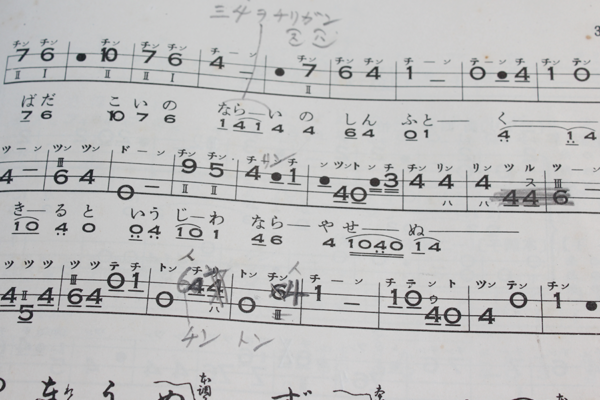 三4ヲナリガン
ス ス
チン チン チン チン チン チ ー ン チン チン チン チ ー ン テ ー ン チ チン テン
7 6 ● 10 7 6 4 ー ● 7 6 4 1 ー 0 ● 4 1 0
Ⅱ Ⅰ Ⅱ Ⅰ Ⅱ
ばだ こいの なら―いの しん ふと― く―
7 6 10 7 6 1 4 1 4 4 6 4 0 1 4 1 4
ツ ー ン ツン ツン ド ー ン チン チン チ チ ン ツントン チ チ リン リン ツル ツ
4 ー 6 4 0 ー 9 5 4 ● 1 ● 40 ● 3 4 4 4 44 6 ー
Ⅲ Ⅱ Ⅱ ハ ハ ス Ⅲ
き―ると いうじ―わ なら―やせ―ぬ―
10 4 0 0 4 10 1 4 6 4 1040 1 4
ツ ツ ツ ツ ツ テ チ トン チリ トン チン チ ー ン チ テ ン ト ツン テン チン
4 5 4 6 4 0 1 0 44 0 6 1 ー 10 40 4 0 1 ●
Ⅱ Ⅲ ハ Ⅲ ウ
チン トン